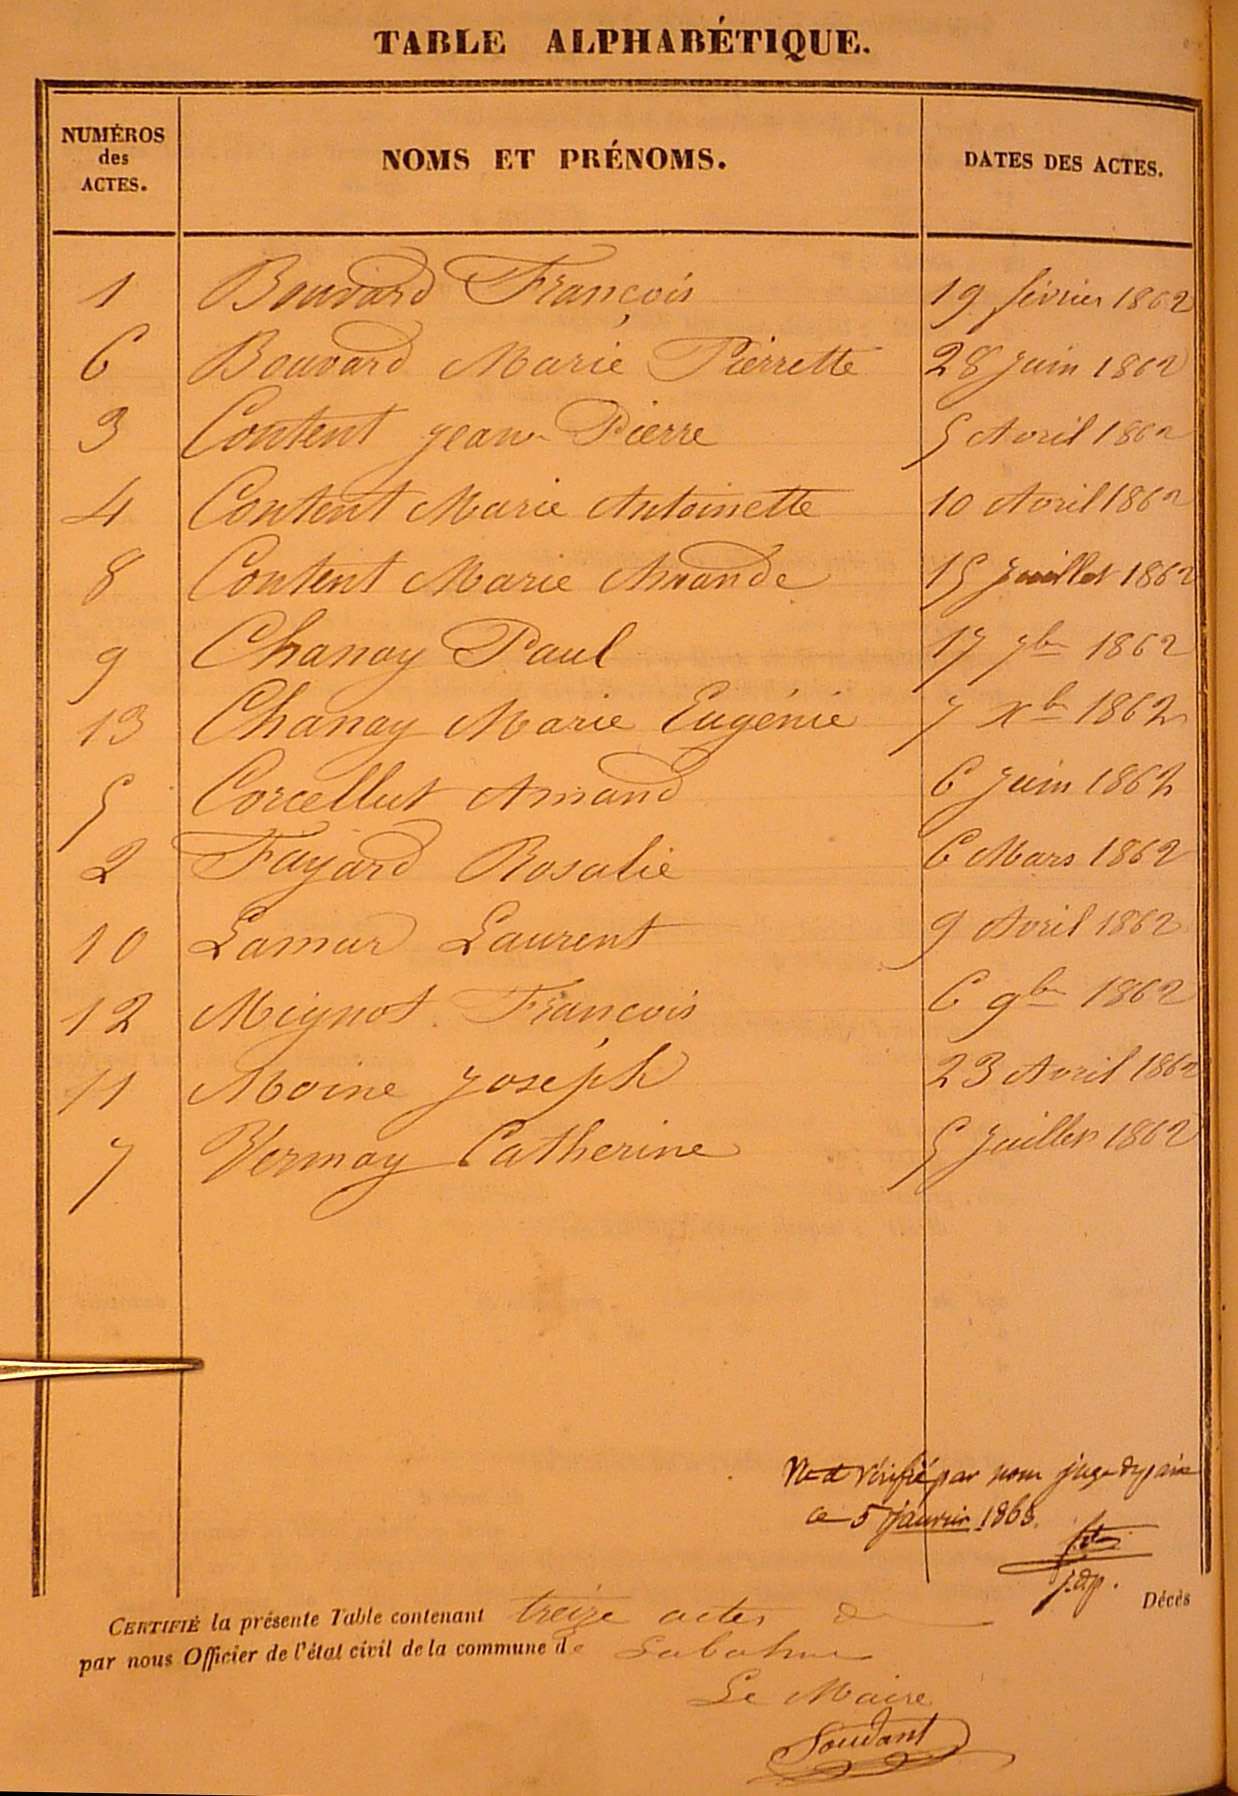 TABLE ALPHABÉTIQUE.
NUMÉROS des ACTES. NOMS ET PRÉNOMS. DATES DES ACTES.
1 Bouvard François 19 février 1862
6 Bouvard Marie Pierrette 28 juin 1862
3 Content jean Pierre 5 Avril 1862
4 Content Marie Antoinette 10 Avril 1862
8 Content Marie Amande 15 juillet 1862
9 Chanay Paul 17 7bre 1862
13 Chanay Marie Eugénie 7 Xbre 1862
5 Corcellut Amand 6 Juin 1862
2 Fayard Rosalie 6 Mars 1862
10 Lamur Laurent 9 Avril 1862
12 Mignot François 6 9bre 1862
11 Moine joseph 23 Avril 1862
7 Vermay Catherine 5 Juillet 1862
vérifié par nous juge de paix
ce 5 janvier 1863.
j.dp.
Décès
CERTIFIÉ la présente Table contenant treize actes de
par nous Officier de l'état civil de la commune de
Le Maire
Soudant